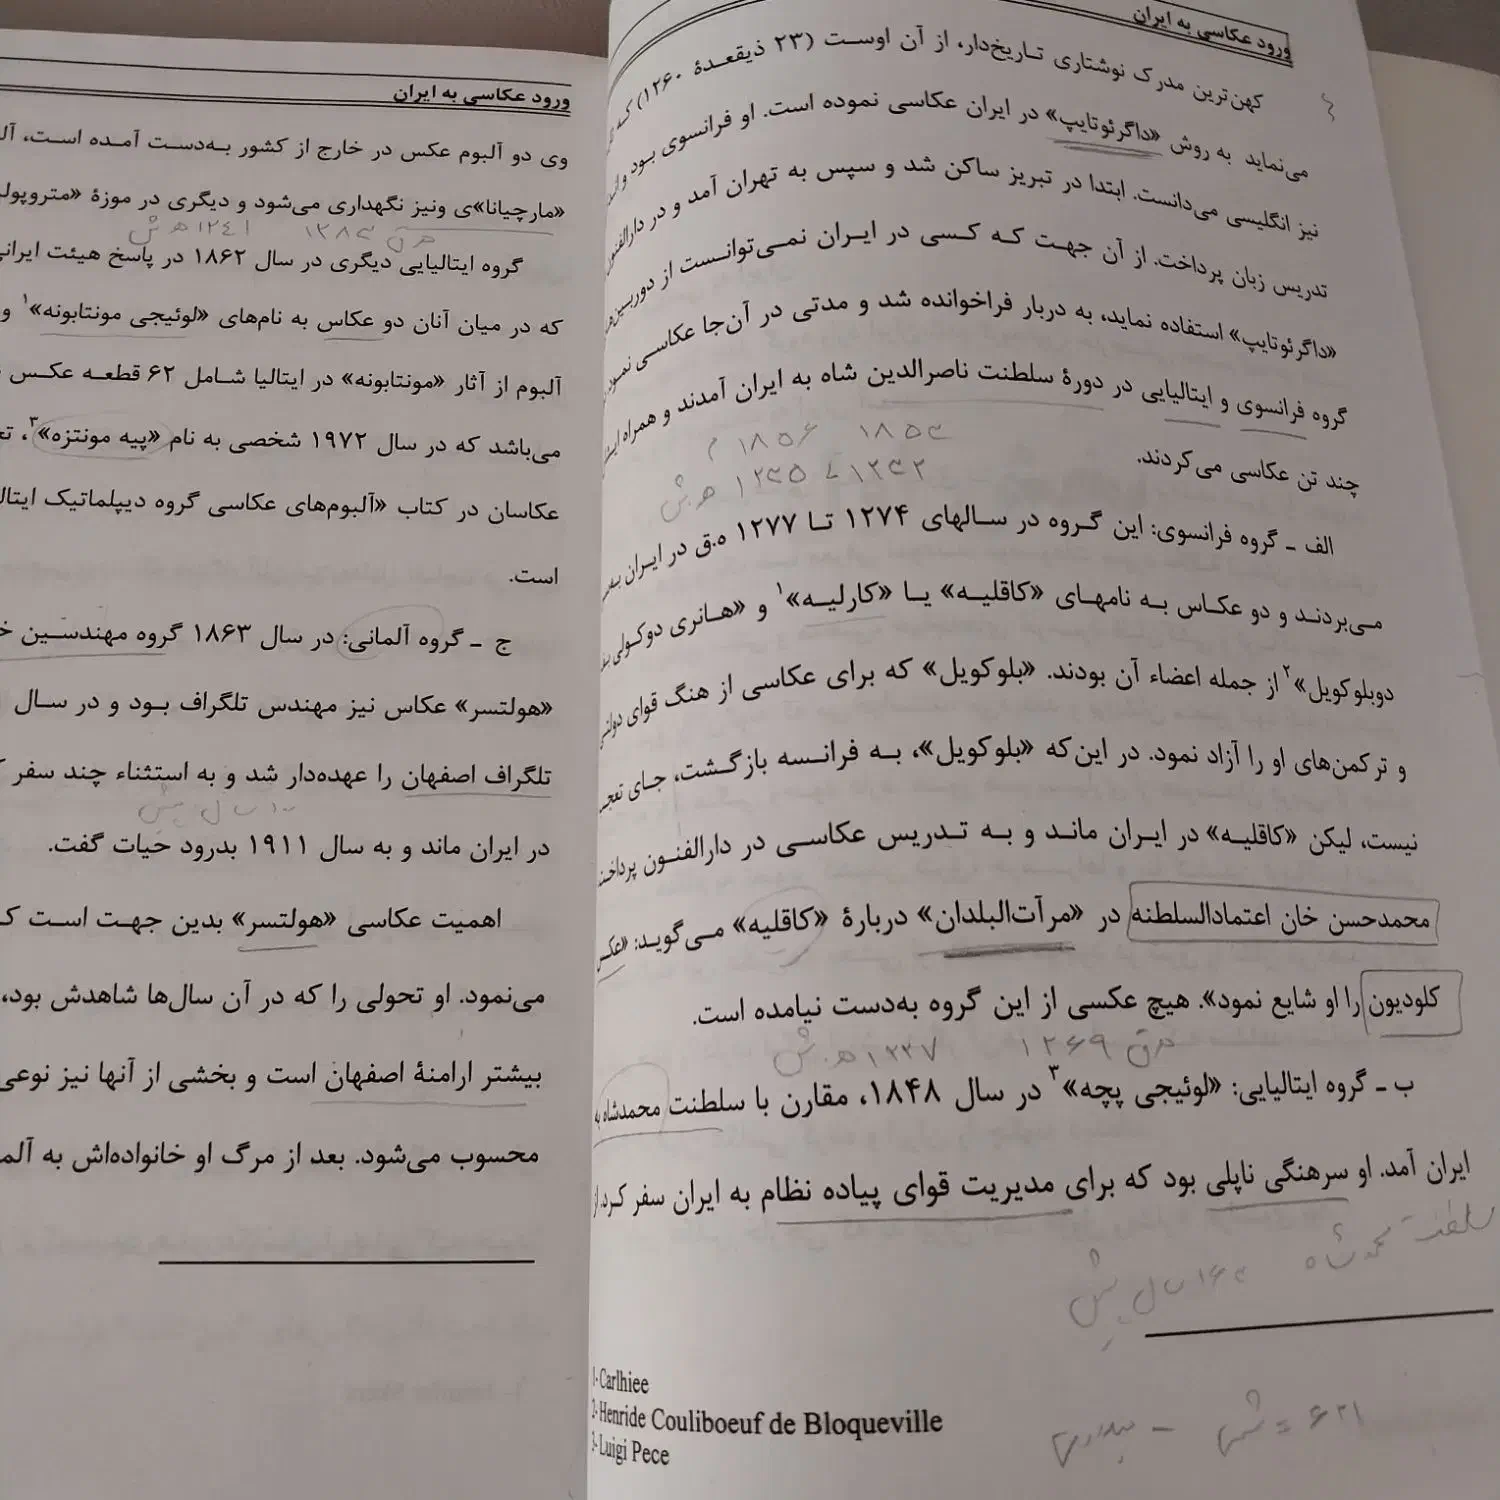 ورود عکاسی به ایران
کهن‌ترین مدرک نوشتاری تاریخ‌دار، از آن اوست (۲۳ ذیقعدهٔ ۱۲۶۰) که
می‌نماید به روش «داگرئوتایپ» در ایران عکاسی نموده است. او فرانسوی بود و
نیز انگلیسی می‌دانست. ابتدا در تبریز ساکن شد و سپس به تهران آمد و در دارالفنون
تدریس زبان پرداخت. از آن جهت که کسی در ایران نمی‌توانست از
«داگرئوتایپ» استفاده نماید، به دربار فراخوانده شد و مدتی در آن‌جا عکاسی
گروه فرانسوی و ایتالیایی در دورهٔ سلطنت ناصرالدین شاه به ایران آمدند و همراه
۱۸۵۶ م
چند تن عکاسی می‌کردند.
۱۲۳۵ ه‍ ش
الف ـ گروه فرانسوی: این گروه در سالهای ۱۲۷۴ تا ۱۲۷۷ ه‍.ق در ایران
می‌بردند و دو عکاس به نامهای «کاقلیه» یا «کارلیه»۱ و «هانری دوکولی
دوبلوکویل»۲ از جمله اعضاء آن بودند. «بلوکویل» که برای عکاسی از هنگ قوای
و ترکمن‌های او را آزاد نمود. در این‌که «بلوکویل»، به فرانسه بازگشت، جای
نیست، لیکن «کاقلیه» در ایران ماند و به تدریس عکاسی در دارالفنون
محمدحسن خان اعتمادالسلطنه در «مرآت‌البلدان» دربارهٔ «کاقلیه» می‌گوید: «عکس
کلودیون را او شایع نمود». هیچ عکسی از این گروه به‌دست نیامده است.
۱۲۶۹ ه‍ ق ۱۲۲۷ ه‍ ش
ب ـ گروه ایتالیایی: «لوئیجی پچه»۳ در سال ۱۸۴۸، مقارن با سلطنت محمدشاه به
ایران آمد. او سرهنگی ناپلی بود که برای مدیریت قوای پیاده نظام به ایران سفر کرد. از
سلطنت محمدشاه
سال پیش
1- Carlhiee
2- Henride Couliboeuf de Bloqueville
3- Luigi Pece
۶۲۱ = شمسی - میلادی
ورود عکاسی به ایران
وی دو آلبوم عکس در خارج از کشور به‌دست آمده است،
«مارچیانا»ی ونیز نگهداری می‌شود و دیگری در موزهٔ
۱۲۴۱ ه‍ ش
گروه ایتالیایی دیگری در سال ۱۸۶۲ در پاسخ هیئت
که در میان آنان دو عکاس به نام‌های «لوئیجی مونتابونه»۱ و
آلبوم از آثار «مونتابونه» در ایتالیا شامل ۶۲ قطعه عکس
می‌باشد که در سال ۱۹۷۲ شخصی به نام «پیه مونتزه»۳،
عکاسان در کتاب «آلبوم‌های عکاسی گروه دیپلماتیک
است.
ج ـ گروه آلمانی: در سال ۱۸۶۳ گروه مهندسین
«هولتسر» عکاس نیز مهندس تلگراف بود و در سال
تلگراف اصفهان را عهده‌دار شد و به استثناء چند سفر
سال پیش
در ایران ماند و به سال ۱۹۱۱ بدرود حیات گفت.
اهمیت عکاسی «هولتسر» بدین جهت است
می‌نمود. او تحولی را که در آن سال‌ها شاهدش بود،
بیشتر ارامنهٔ اصفهان است و بخشی از آنها نیز نوعی
محسوب می‌شود. بعد از مرگ او خانواده‌اش به